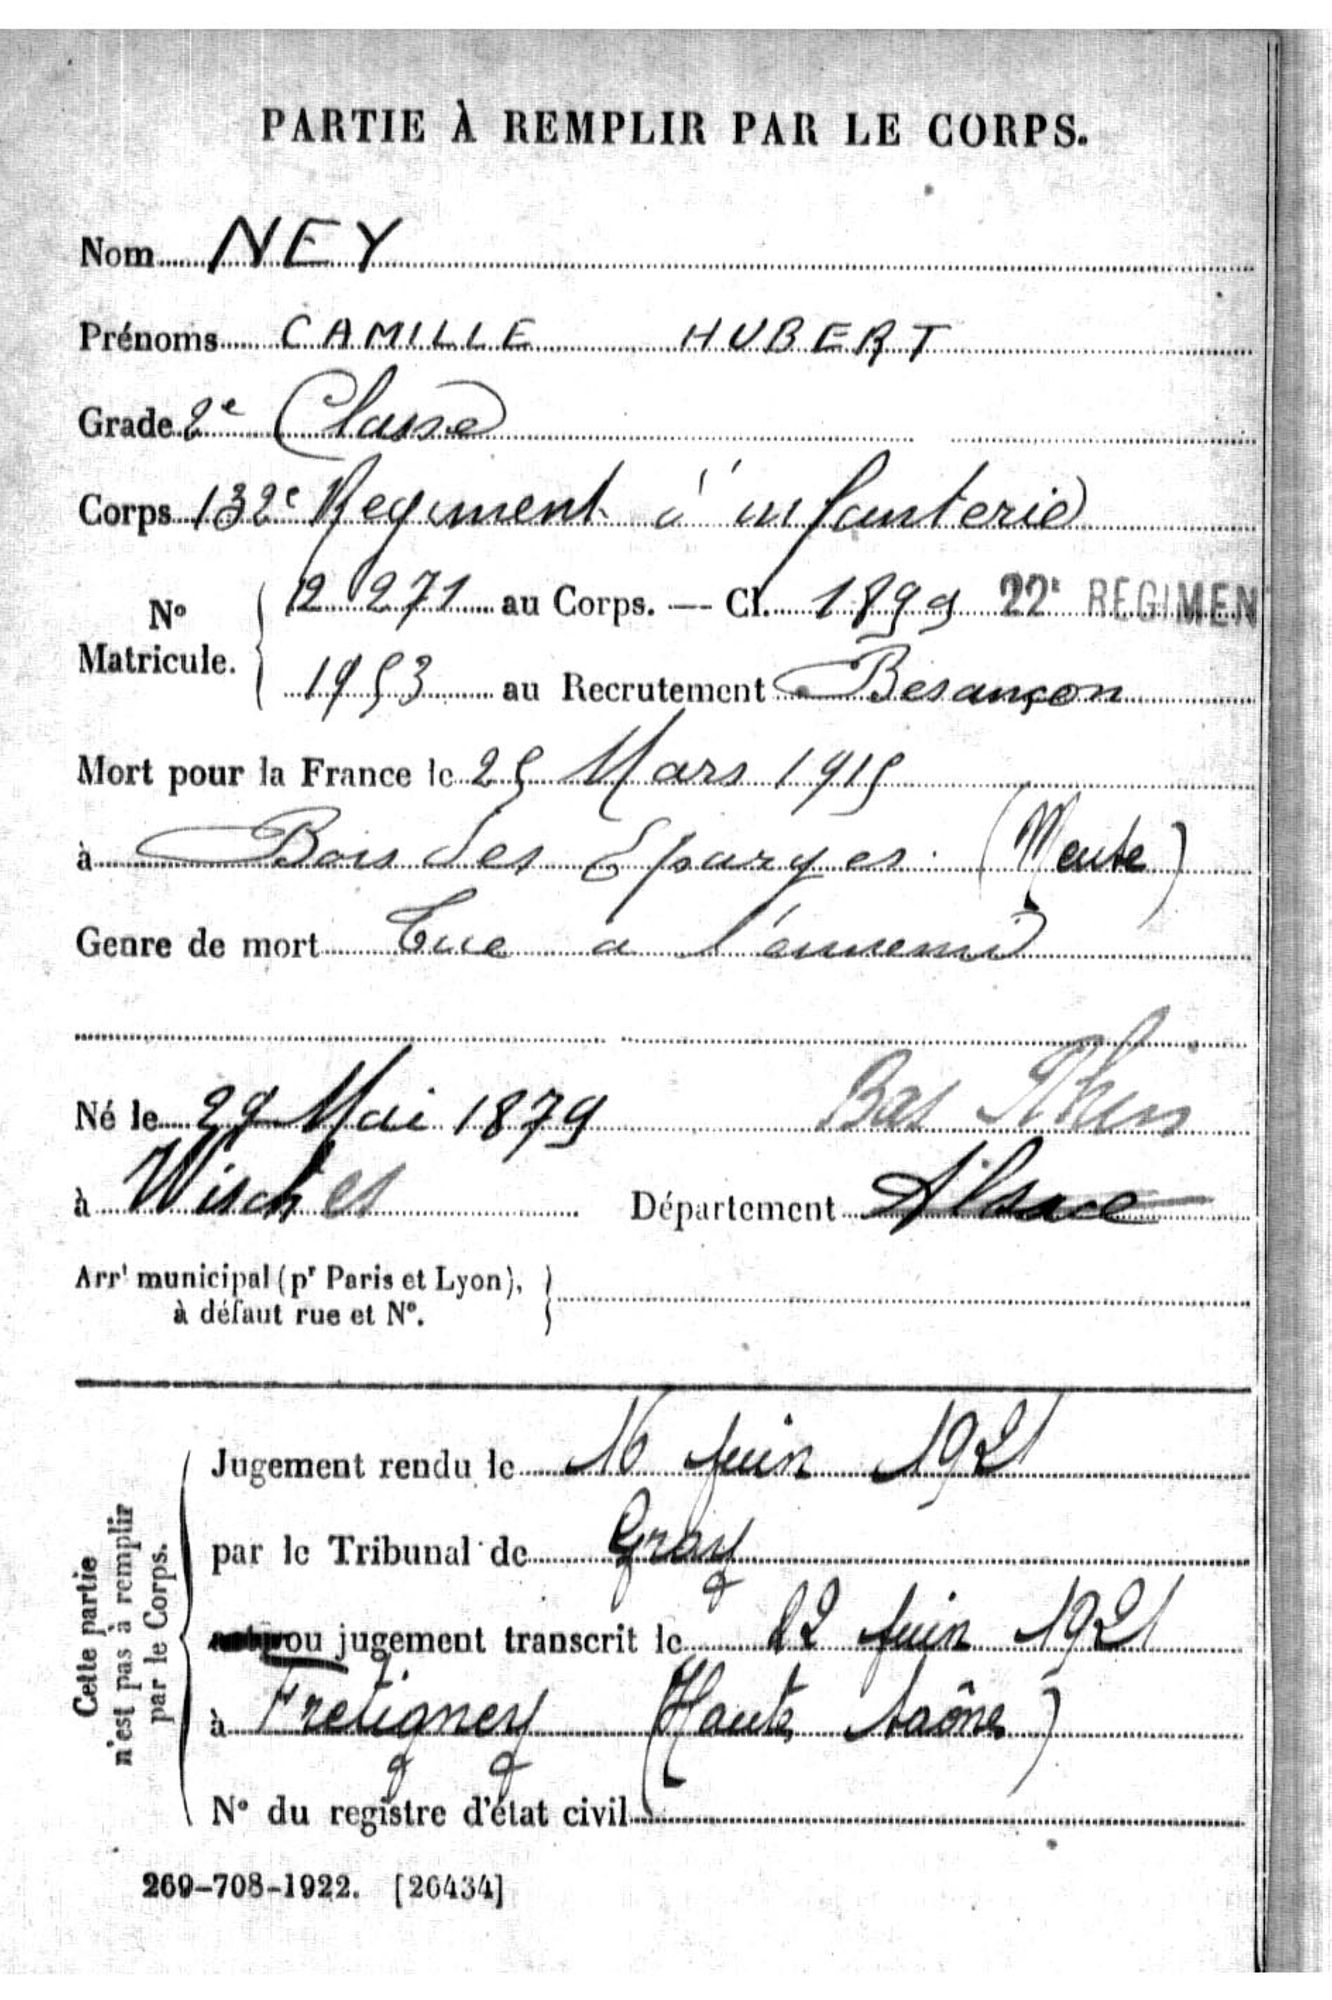 PARTIE À REMPLIR PAR LE CORPS.
Nom NEY
Prénoms CAMILLE HUBERT
Grade 2e Classe
Corps 132e Regiment d'infanterie
No Matricule. 12 271 au Corps. — Cl. 1899 22e REGIMEN
1953 au Recrutement Besançon
Mort pour la France le 25 Mars 1915
à Bois des Eparges (Meuse)
Genre de mort Tué a l'ennemi
Bas Rhin
Né le 29 Mai 1879
à Wisches Département Alsace
Arrt municipal (pr Paris et Lyon),
à défaut rue et No.
Cette partie
n'est pas à remplir
par le Corps.
Jugement rendu le 16 Juin 1921
par le Tribunal de Gray
ou jugement transcrit le 22 Juin 1921
à Fretigney (Haute Saône)
No du registre d'état civil
269-708-1922. [26434]